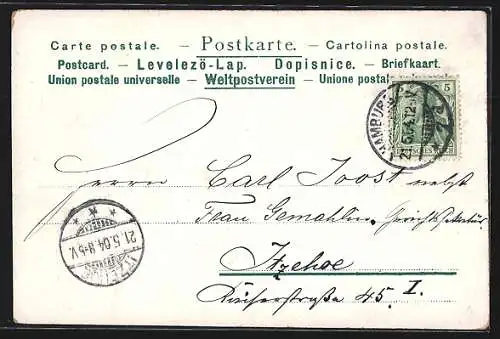 Carte postale. — Postkarte. — Cartolina postale.
Postcard. — Levelezö-Lap. Dopisnice. — Briefkaart.
Union postale universelle — Weltpostverein — Unione postal
5
HAMBURG
21.5.04.12
Herrn Carl Joost nebst
Frau Gemahlin, Gerichtssekretär
Itzehoe
Kaiserstraße 45 I.
ITZEHOE
21.5.04 8-9V.